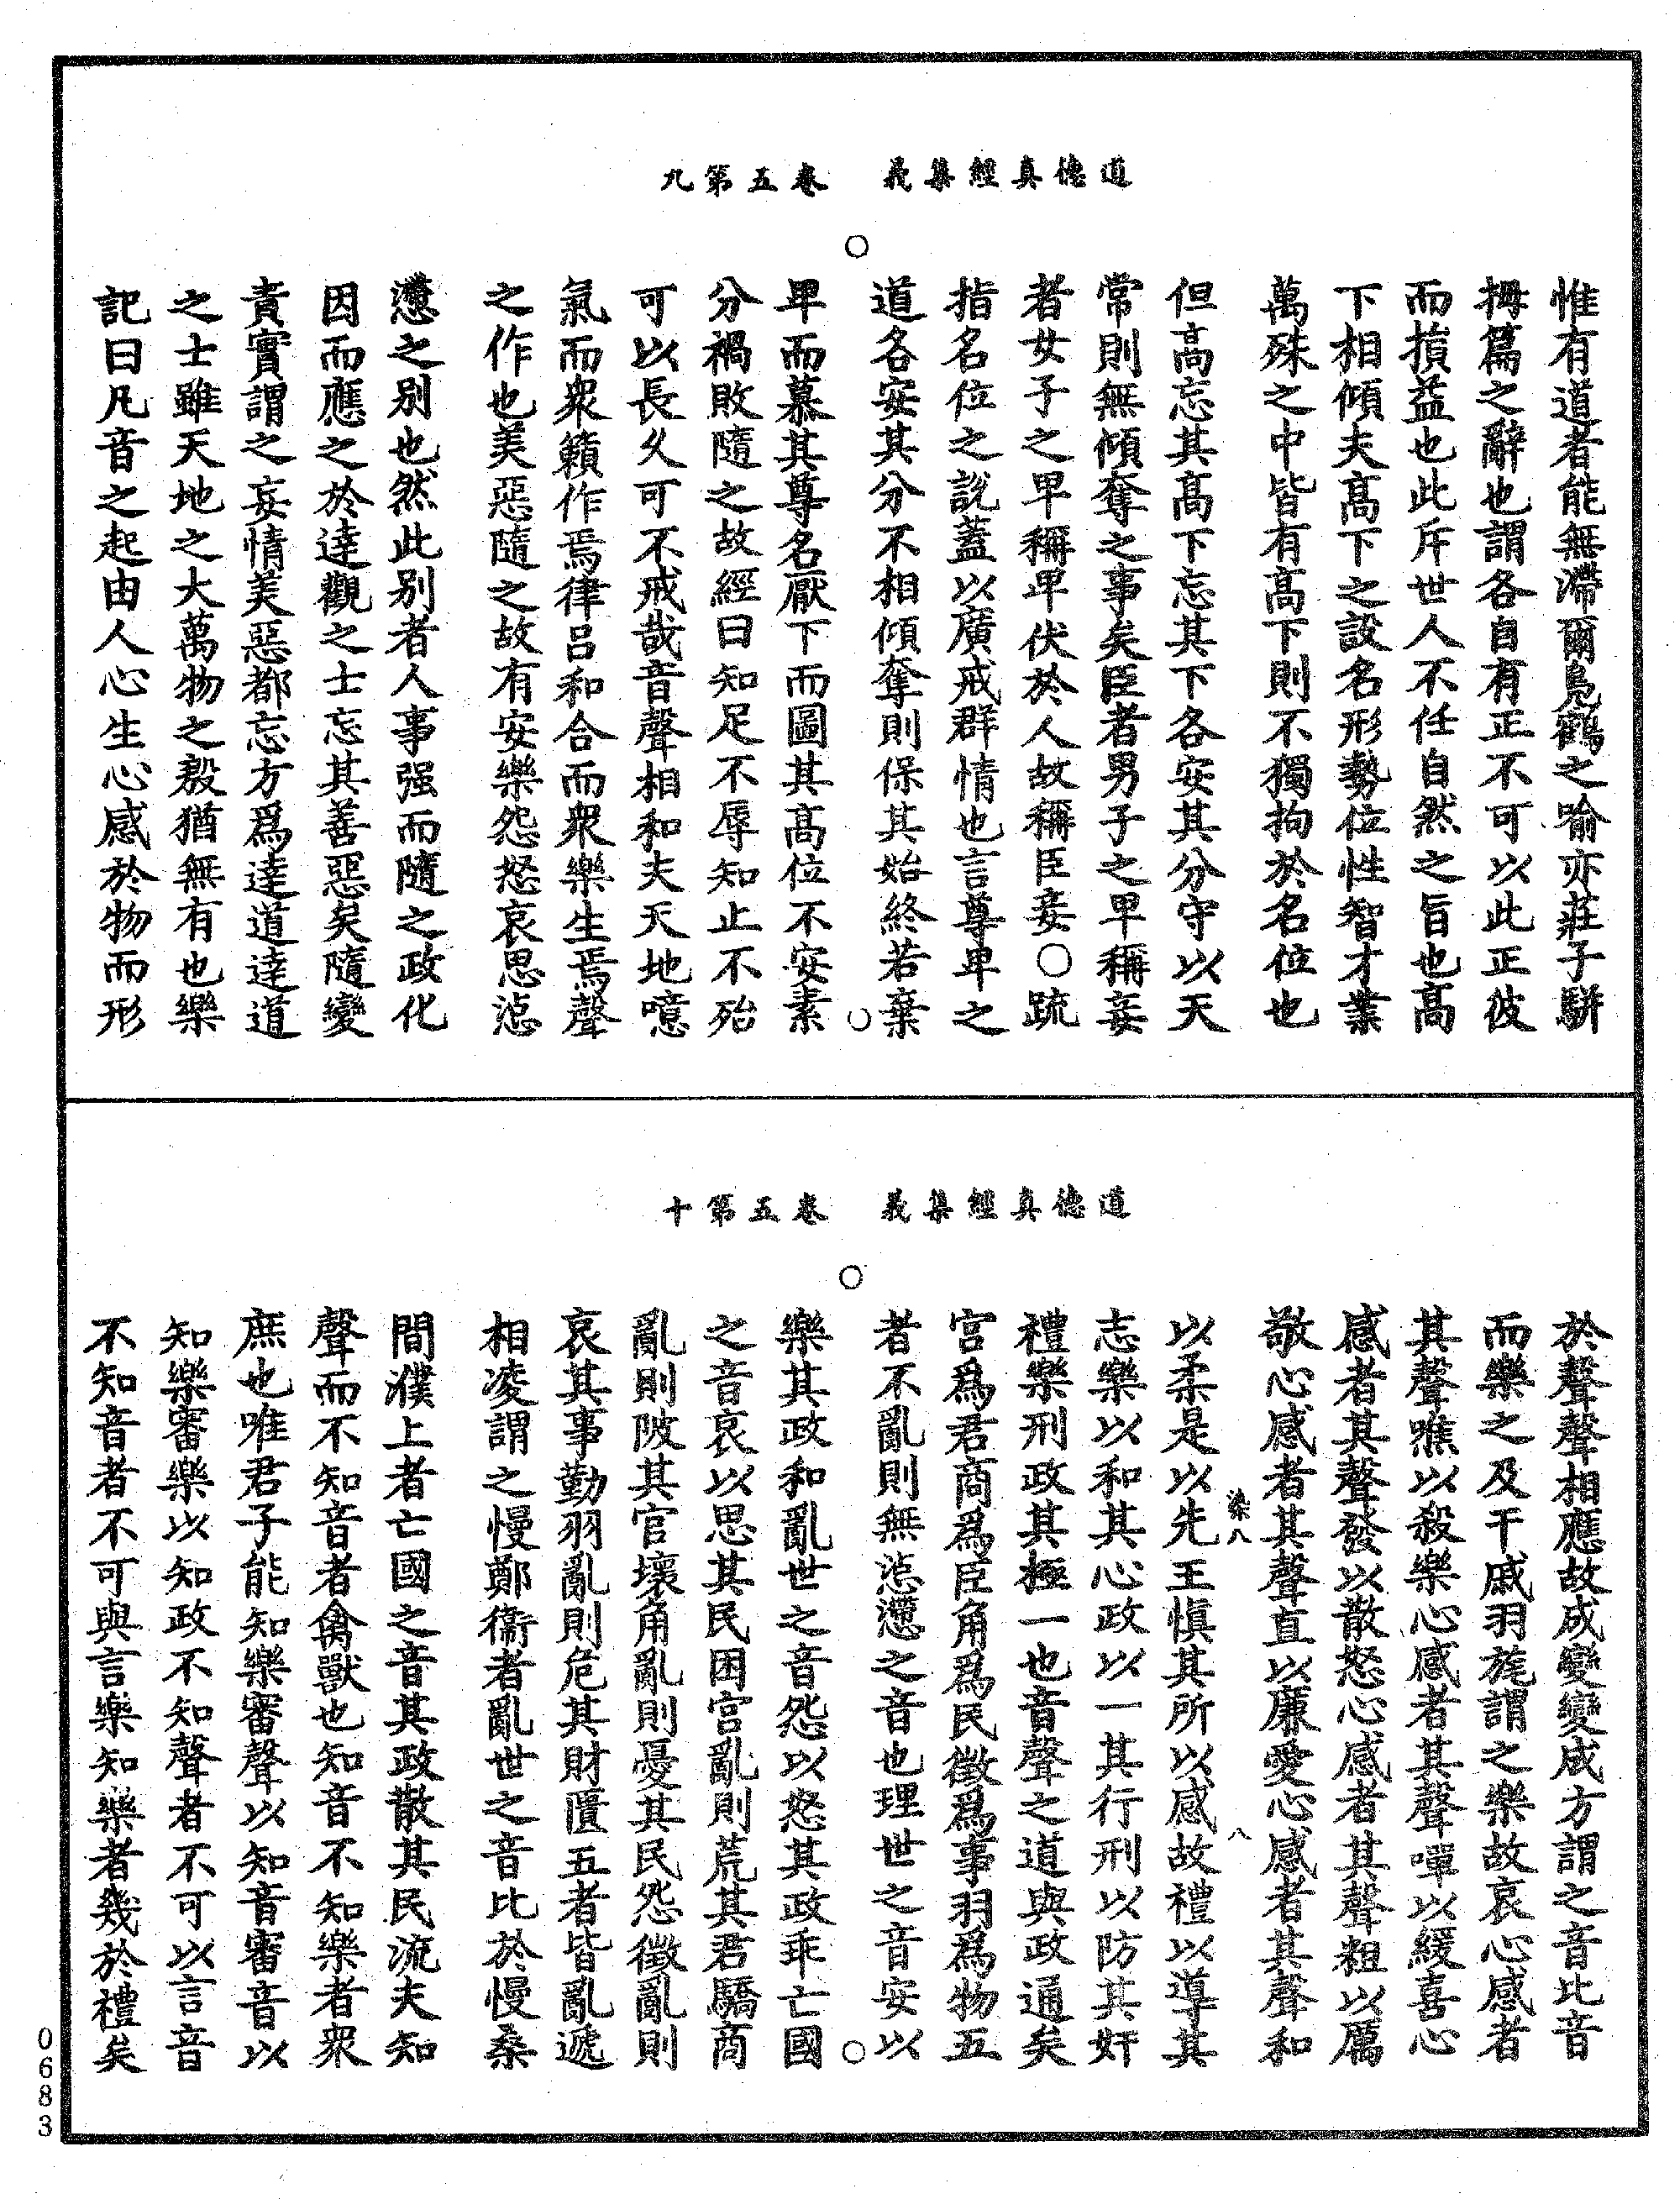 道德真經集義　卷五第九
惟有道者能無滯爾鳧鶴之喻亦莊子駢
拇篇之辭也謂各自有正不可以此正彼
而損益也此斥世人不任自然之旨也高
下相傾夫高下之設名形勢位性智才業
萬殊之中皆有高下則不獨拘於名位也
但高忘其高下忘其下各安其分守以天
常則無傾奪之事矣臣者男子之卑稱妾
者女子之卑稱卑伏於人故稱臣妾○疏
指名位之說蓋以廣戒群情也言尊卑之
道各安其分不相傾奪則保其始終若棄
卑而慕其尊名厭下而圖其高位不安素
分禍敗隨之故經曰知足不辱知止不殆
可以長久可不戒哉音聲相和夫天地噫
氣而衆籟作焉律呂和合而衆樂生焉聲
之作也美惡隨之故有安樂怨怒哀思惉
懘之別也然此別者人事强而隨之政化
因而應之於達觀之士忘其善惡矣隨變
責實謂之妄情美惡都忘方爲達道達道
之士雖天地之大萬物之殽猶無有也樂
記曰凡音之起由人心生心感於物而形
道德真經集義　卷五第十
於聲聲相應故成變變成方謂之音比音
而樂之及干戚羽旄謂之樂故哀心感者
其聲噍以殺樂心感者其聲嘽以緩喜心
感者其聲發以散怒心感者其聲粗以厲
敬心感者其聲直以廉愛心感者其聲和
染八
八
以柔是以先王愼其所以感故禮以導其
志樂以和其心政以一其行刑以防其奸
禮樂刑政其極一也音聲之道與政通矣
宮爲君商爲臣角爲民徵爲事羽爲物五
者不亂則無惉懘之音也理世之音安以
樂其政和亂世之音怨以怒其政乖亡國
之音哀以思其民困宮亂則荒其君驕商
亂則陂其官壞角亂則憂其民怨徵亂則
哀其事勤羽亂則危其財匱五者皆亂遞
相凌謂之慢鄭衛者亂世之音比於慢桑
間濮上者亡國之音其政散其民流夫知
聲而不知音者禽獸也知音不知樂者衆
庶也唯君子能知樂審聲以知音審音以
知樂審樂以知政不知聲者不可以言音
不知音者不可與言樂知樂者幾於禮矣
0683